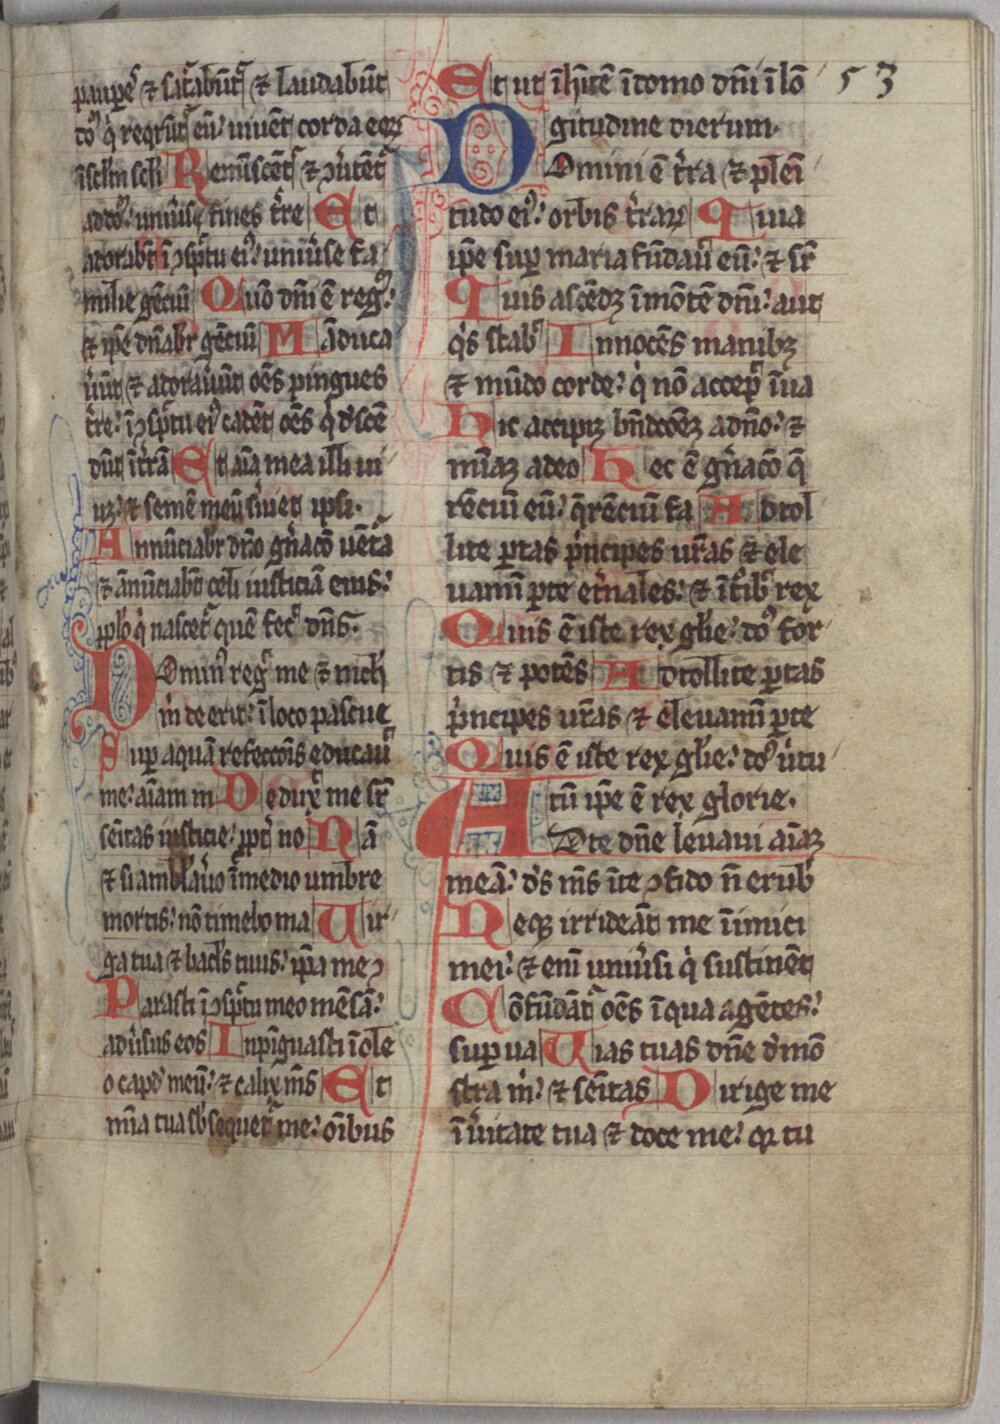 paup̲e͛s ⁊ sat᷑abūt᷑ ⁊ laudabūt
dō ꝙ reqr̄ūt eū: uiuēt corda eoꝝ
ī sclm̄ scli Reminiscēt᷑ ⁊ ꝯuͥtēt᷑
ad dō: uniūsi fines t̄re Et
adorabūt ī ꝯspc̄tu eiꝰ: uniūse fa
milie gēciū Quō dn̄i ē reg̅:
⁊ ip̄e dn̄abr̄ gēciū Māduca
ūūt ⁊ adorauūt oēs pingues
t̄re: ī ꝯspc̄tu eiꝰ cadēt oēs q̄ dscē
dūt ī t̄rā Et aīa mea illi ui
uꝫ: ⁊ semē meū suiet ipsi.
Annūciabr̄ dn̄o gn̄acō uēt᷑a
⁊ ānūciabūt celi iusticiā eius:
pplo q̇ nascet᷑ quē fec̄ dn̄s.
Dominꝰ reg̅ me ⁊ nich̄
m̄ deerit: ī loco pascue
Sup̲ aquā refeccōis educaū
me: aīam m Deduxꝰ me sr̄
sēitas iusticie: ppt̄ no Nā
⁊ si amblauō ī medio umbre
mortis: nō timebo ma Uir
ga tua ⁊ baclꝰs tuus: ip̄a me ꝯ
Parasti ī ꝯspc̄tu meo mēsā:
adūsus eos Inpīguasti ī ole
o capdꝰ meū: ⁊ calix m̄s Et
m̄ia tua sb̄sequet᷑ me: oībus
Et ut īhīt̄ē ī domo dn̄i ī lō
53
gitudine dierum.
Domini ē t̄ra ⁊ plēi
tudo eiꝰ: orbis t̄raꝝ Quia
ip̄e sup̲ maria fūdaū eū: ⁊ sr̄
Quis ascēdꝫ ī mōtē dn̄i: aut
q̇s stabꝰ Innocēs manibꝫ
⁊ mūdo corde: q̇ nō accep̲ ī ua
Hic accipiꝫ bn̄dccōeꝫ a dn̄o: ⁊
m̄iaꝫ a deo Hec ē gn̄acō q̄
rēciū eū: q̄rēciū fa Adtol
lite p̲tas p̓ncipes ur̄as ⁊ ele
uamī p̲te et̄nales: ⁊ īt̄ib̄ rex
Quis ē iste rex gl̄ie: doꝰ for
tis ⁊ potēs Adtollite p̲tas
p̓ncipes ur̄as ⁊ eleuamī p̲te
Quis ē iste rex gl̄ie: doꝰ ūtu
tū ip̄e ē rex glorie.
Ad te dn̄e leuaui aīaꝫ
meā: ds ms ī te ꝯfido n̄ erub̄
Neqꝫ irrideāt me īimici
mei: ⁊ enī uniūsi q̇ sustinēt
Cōfūdāt᷑ oēs īqua agētes:
sup̲ ua Uias tuas dn̄e dmō
stra m̄: ⁊ sēitas Dirige me
ī ūitate tua ⁊ doce me: qꝛ tu